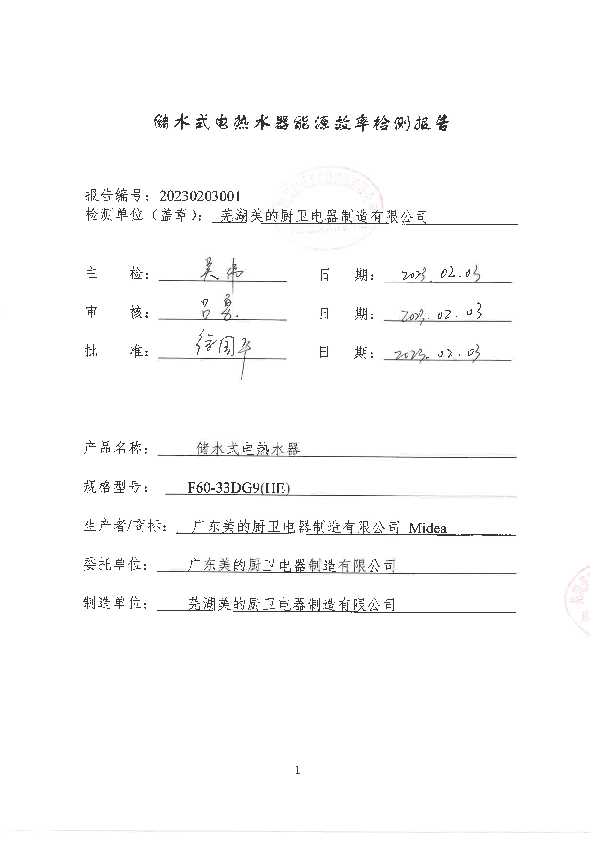 储水式电热水器能源效率检测报告
报告编号：20230203001
检测单位（盖章）：芜湖美的厨卫电器制造有限公司
主 检：吴伟 日 期：2023.02.03
审 核：吕勇 日 期：2023.02.03
批 准：徐国平 日 期：2023.02.03
产品名称：储水式电热水器
规格型号：F60-33DG9(HE)
生产者/商标：广东美的厨卫电器制造有限公司 Midea
委托单位：广东美的厨卫电器制造有限公司
制造单位：芜湖美的厨卫电器制造有限公司
1